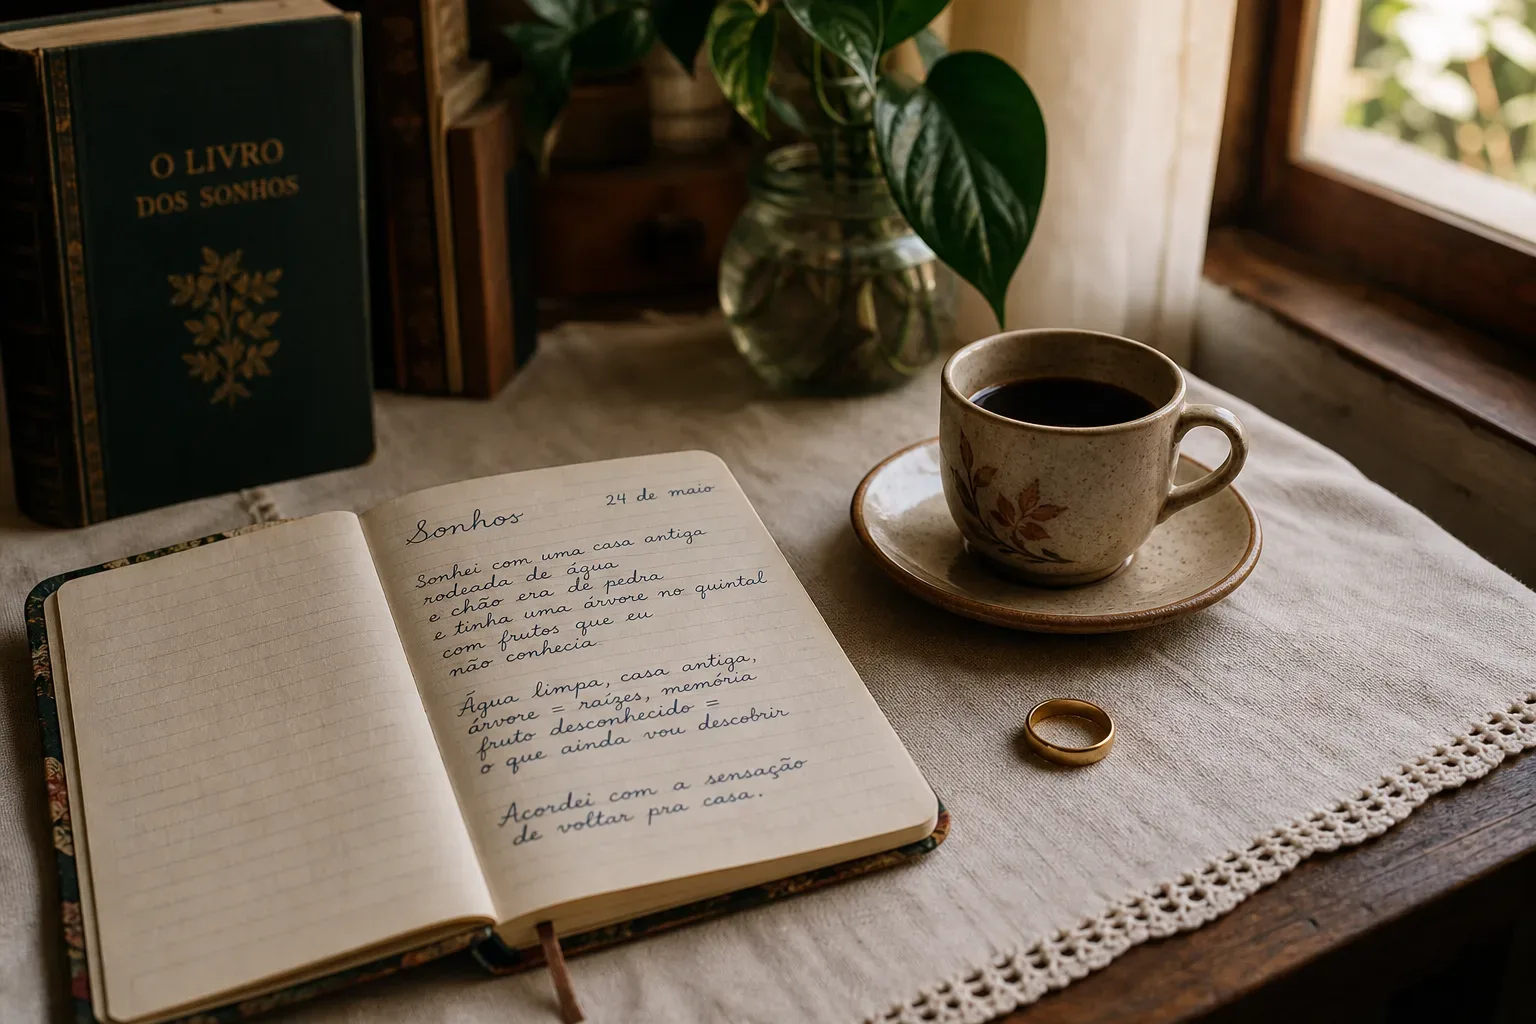 O LIVRO
DOS SONHOS
Sonhos
24 de maio
Sonhei com uma casa antiga
rodeada de água
e chão era de pedra
e tinha uma árvore no quintal
com frutos que eu
não conhecia.
Água limpa, casa antiga,
árvore = raízes, memória
fruto desconhecido =
o que ainda vou descobrir
Acordei com a sensação
de voltar pra casa.